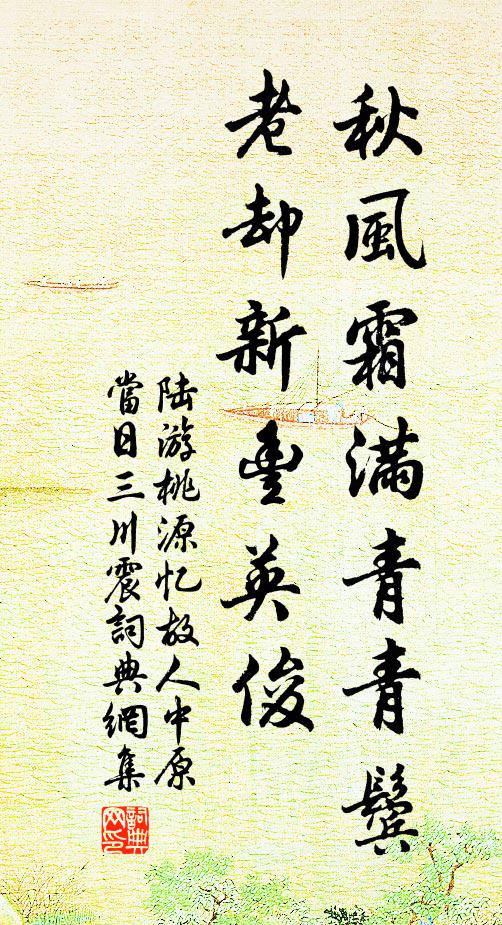 秋風霜满青青鬓
老却新豊英俊
陆游桃源忆故人中原
當日三川震詞典網集
詞典网印